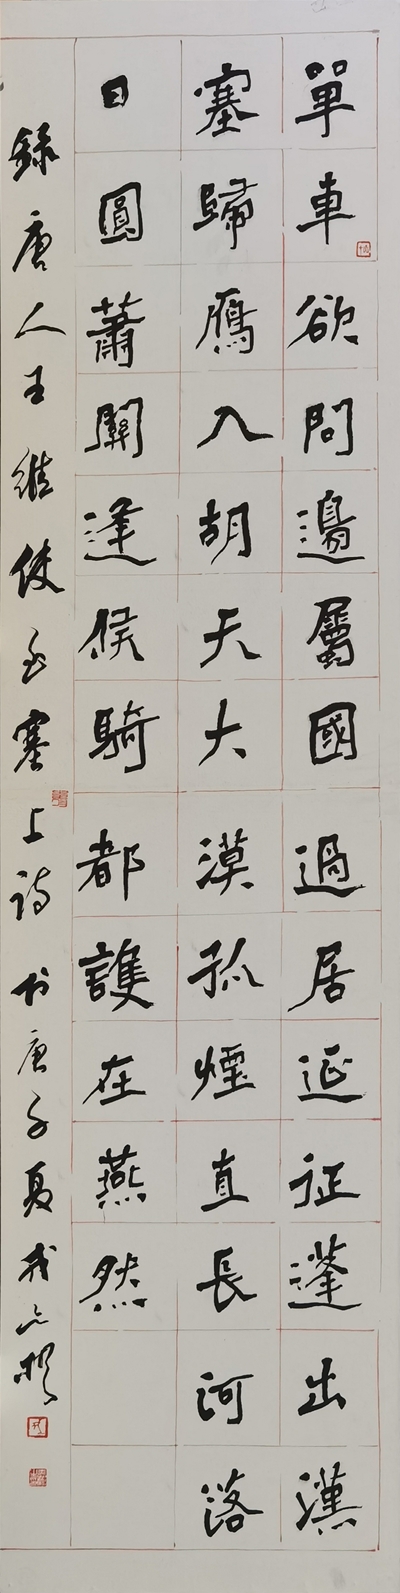 單車欲問邊屬國過居延征蓬出漢
塞歸鴈入胡天大漠孤煙直長河落
日圓蕭關逢候騎都護在燕然
錄唐人王維使至塞上詩於庚子夏